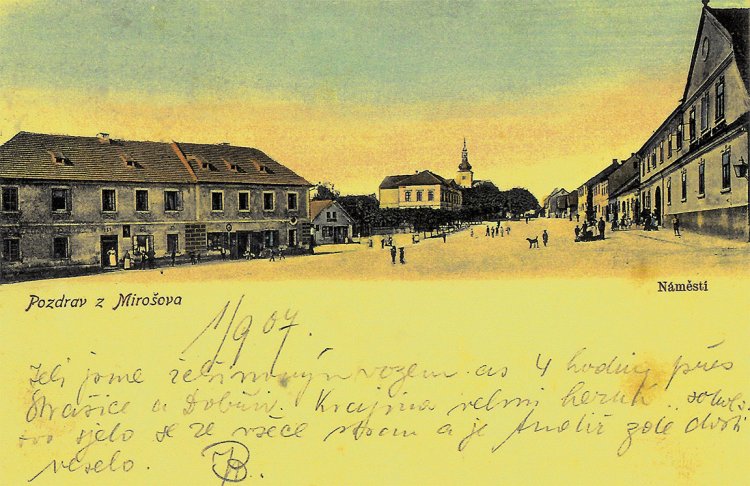 Pozdrav z Mirošova
Náměstí
1/9 07.
Jeli jsme žebřinovým vozem as 4 hodiny přes
Strašice a Dobřív. Krajina velmi hezká..
se ze všece stran a je tudíž zde dosti
veselo.